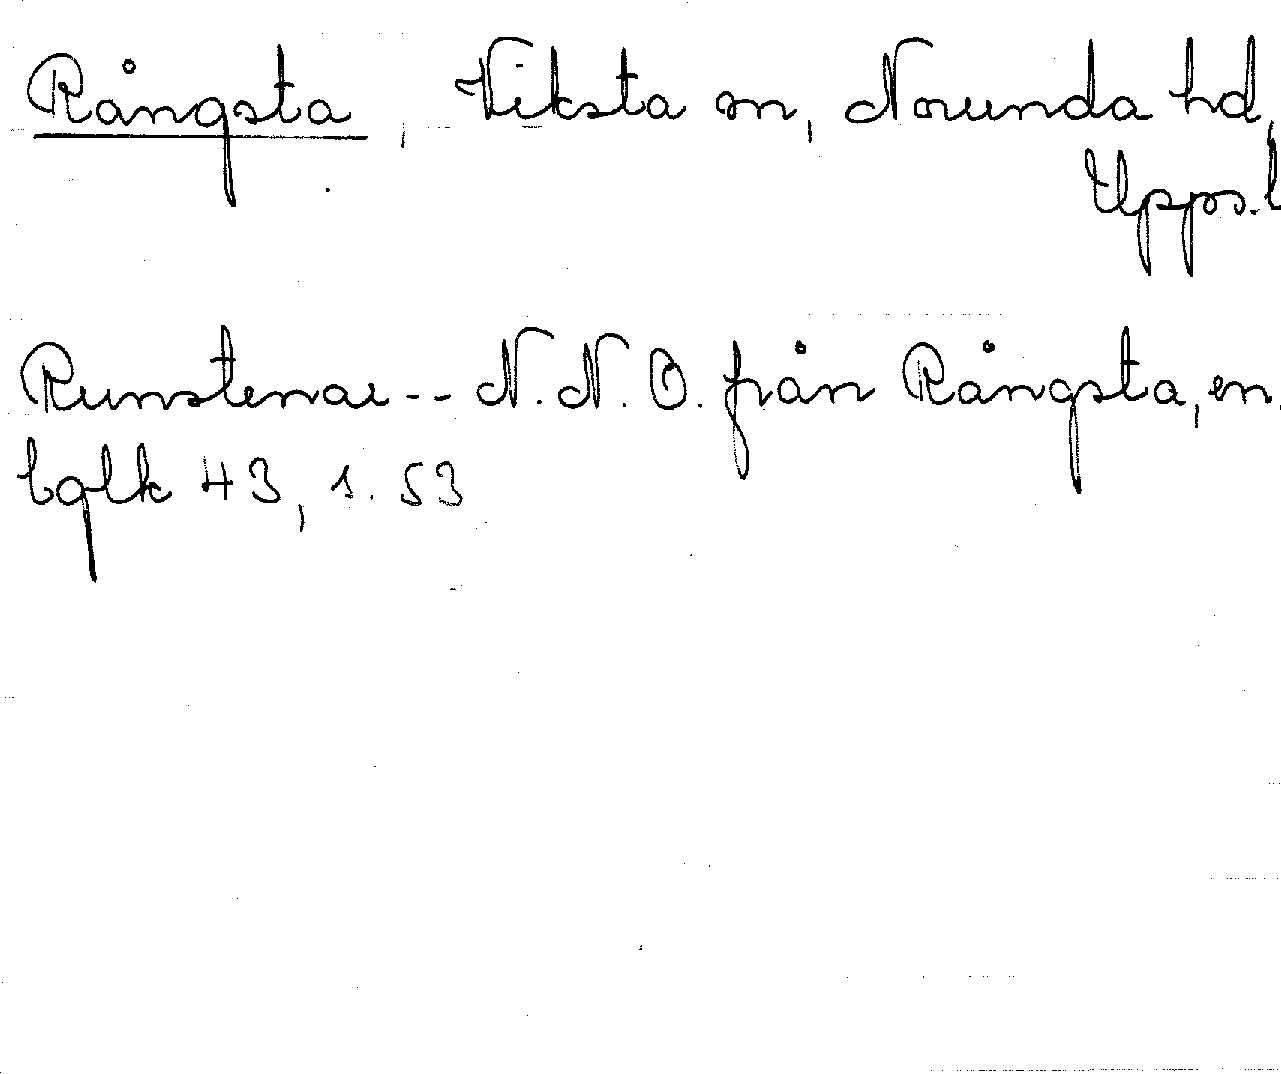 Rångsta, Viksta sn, Norunda hd,
Upps. l
Runstenar -- N. N. O. från Rångsta, en.
bglk 43, s. 53